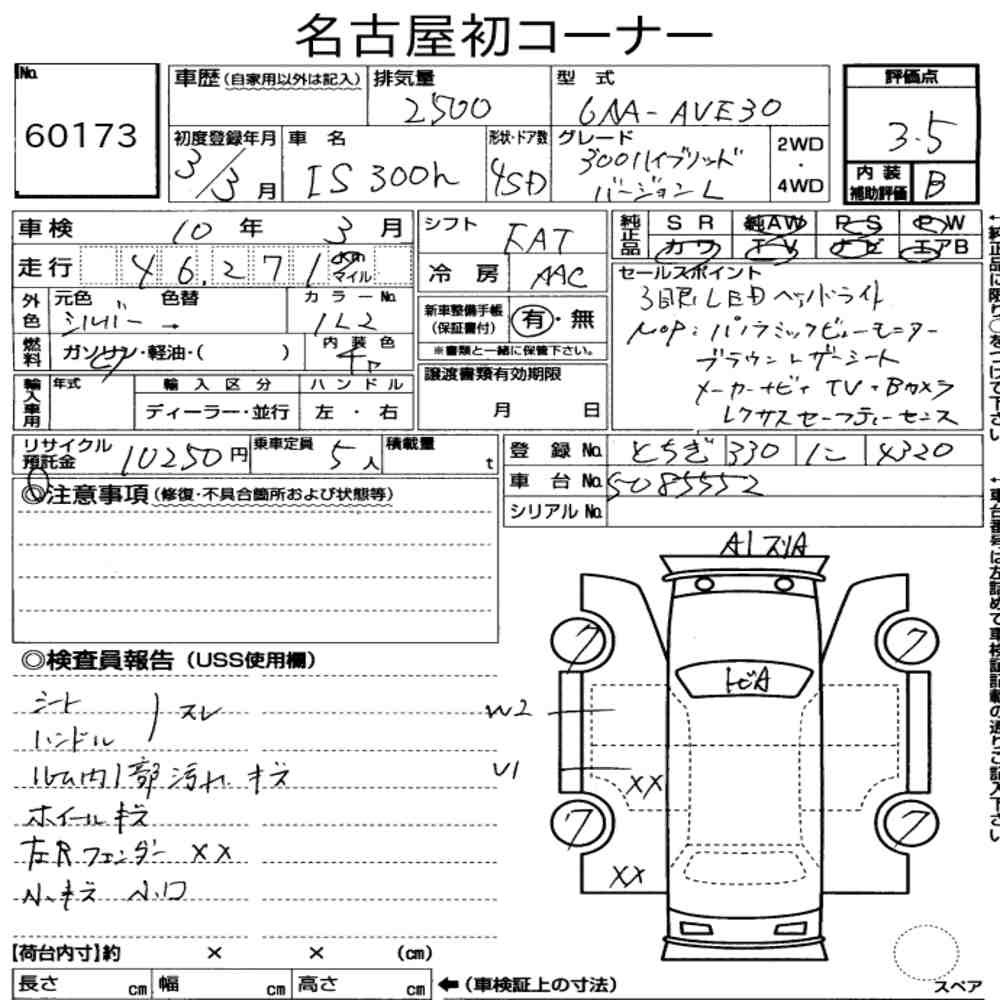 名古屋初コーナー
No.
60173
車歴(自家用以外は記入)
排気量
2500
型 式
6AA-AVE30
評価点
3.5
内 装
補助評価
B
初度登録年月
3/3月
車 名
IS300h
形状・ドア数
4SD
グレード
300hハイブリッド
バージョンL
2WD
・
4WD
車検
10年 3月
走行
46,271
km
マイル
シフト
FAT
冷 房
AAC
純正品
SR 純AW PS PW
カワ TV ナビ エアB
←純正品に限り○をつけて下さい
外色
元色
シルバー
色替
→
カラーNo.
1L2
燃料
ガソリン・軽油・( )
内装色
チャ
新車整備手帳
(保証書付)
有・無
※書類と一緒に保管下さい。
セールスポイント
3眼LEDヘッドライト
MOP:パノラミックビューモニター
ブラウンレザーシート
メーカーナビ+TV+Bカメラ
レクサスセーフティーセンス
輸入車用
年式
輸入区分
ハンドル
ディーラー・並行
左・右
譲渡書類有効期限
月 日
リサイクル
預託金
10250円
乗車定員
5人
積載量
t
登 録 No.
とちぎ 330 に 4320
車 台 No.
5085552
シリアル No.
←車台番号は左詰めで車検証記載の通りご記入下さい
◎注意事項(修復・不具合箇所および状態等)
A1スリA
トビA
7
7
W2
U1
XX
7
7
XX
◎検査員報告(USS使用欄)
シート
ハンドル
スレ
ルーム内1部汚れ キズ
ホイールキズ
左Rフェンダー XX
小キズ 小凹
【荷台内寸】約 × × (cm)
長さ cm 幅 cm 高さ cm
←(車検証上の寸法)
スペア